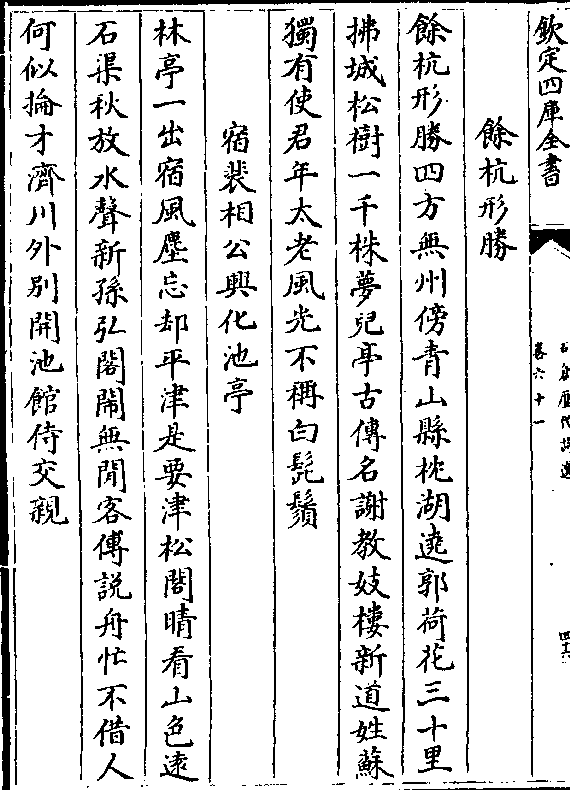 欽定四庫全書
卷六十一
餘杭形勝
餘杭形勝四方無州傍青山縣枕湖遶郭荷花三十里
拂城松樹一千株夢兒亭古傳名謝教妓樓新道姓蘇
獨有使君年太老風光不稱白髭鬚
宿裴相公興化池亭
林亭一出宿風塵忘却平津是要津松閣晴看山色逺
石渠秋放水聲新孫弘閣閙無閒客傅説舟忙不借人
何似掄才濟川外別開池館待交親